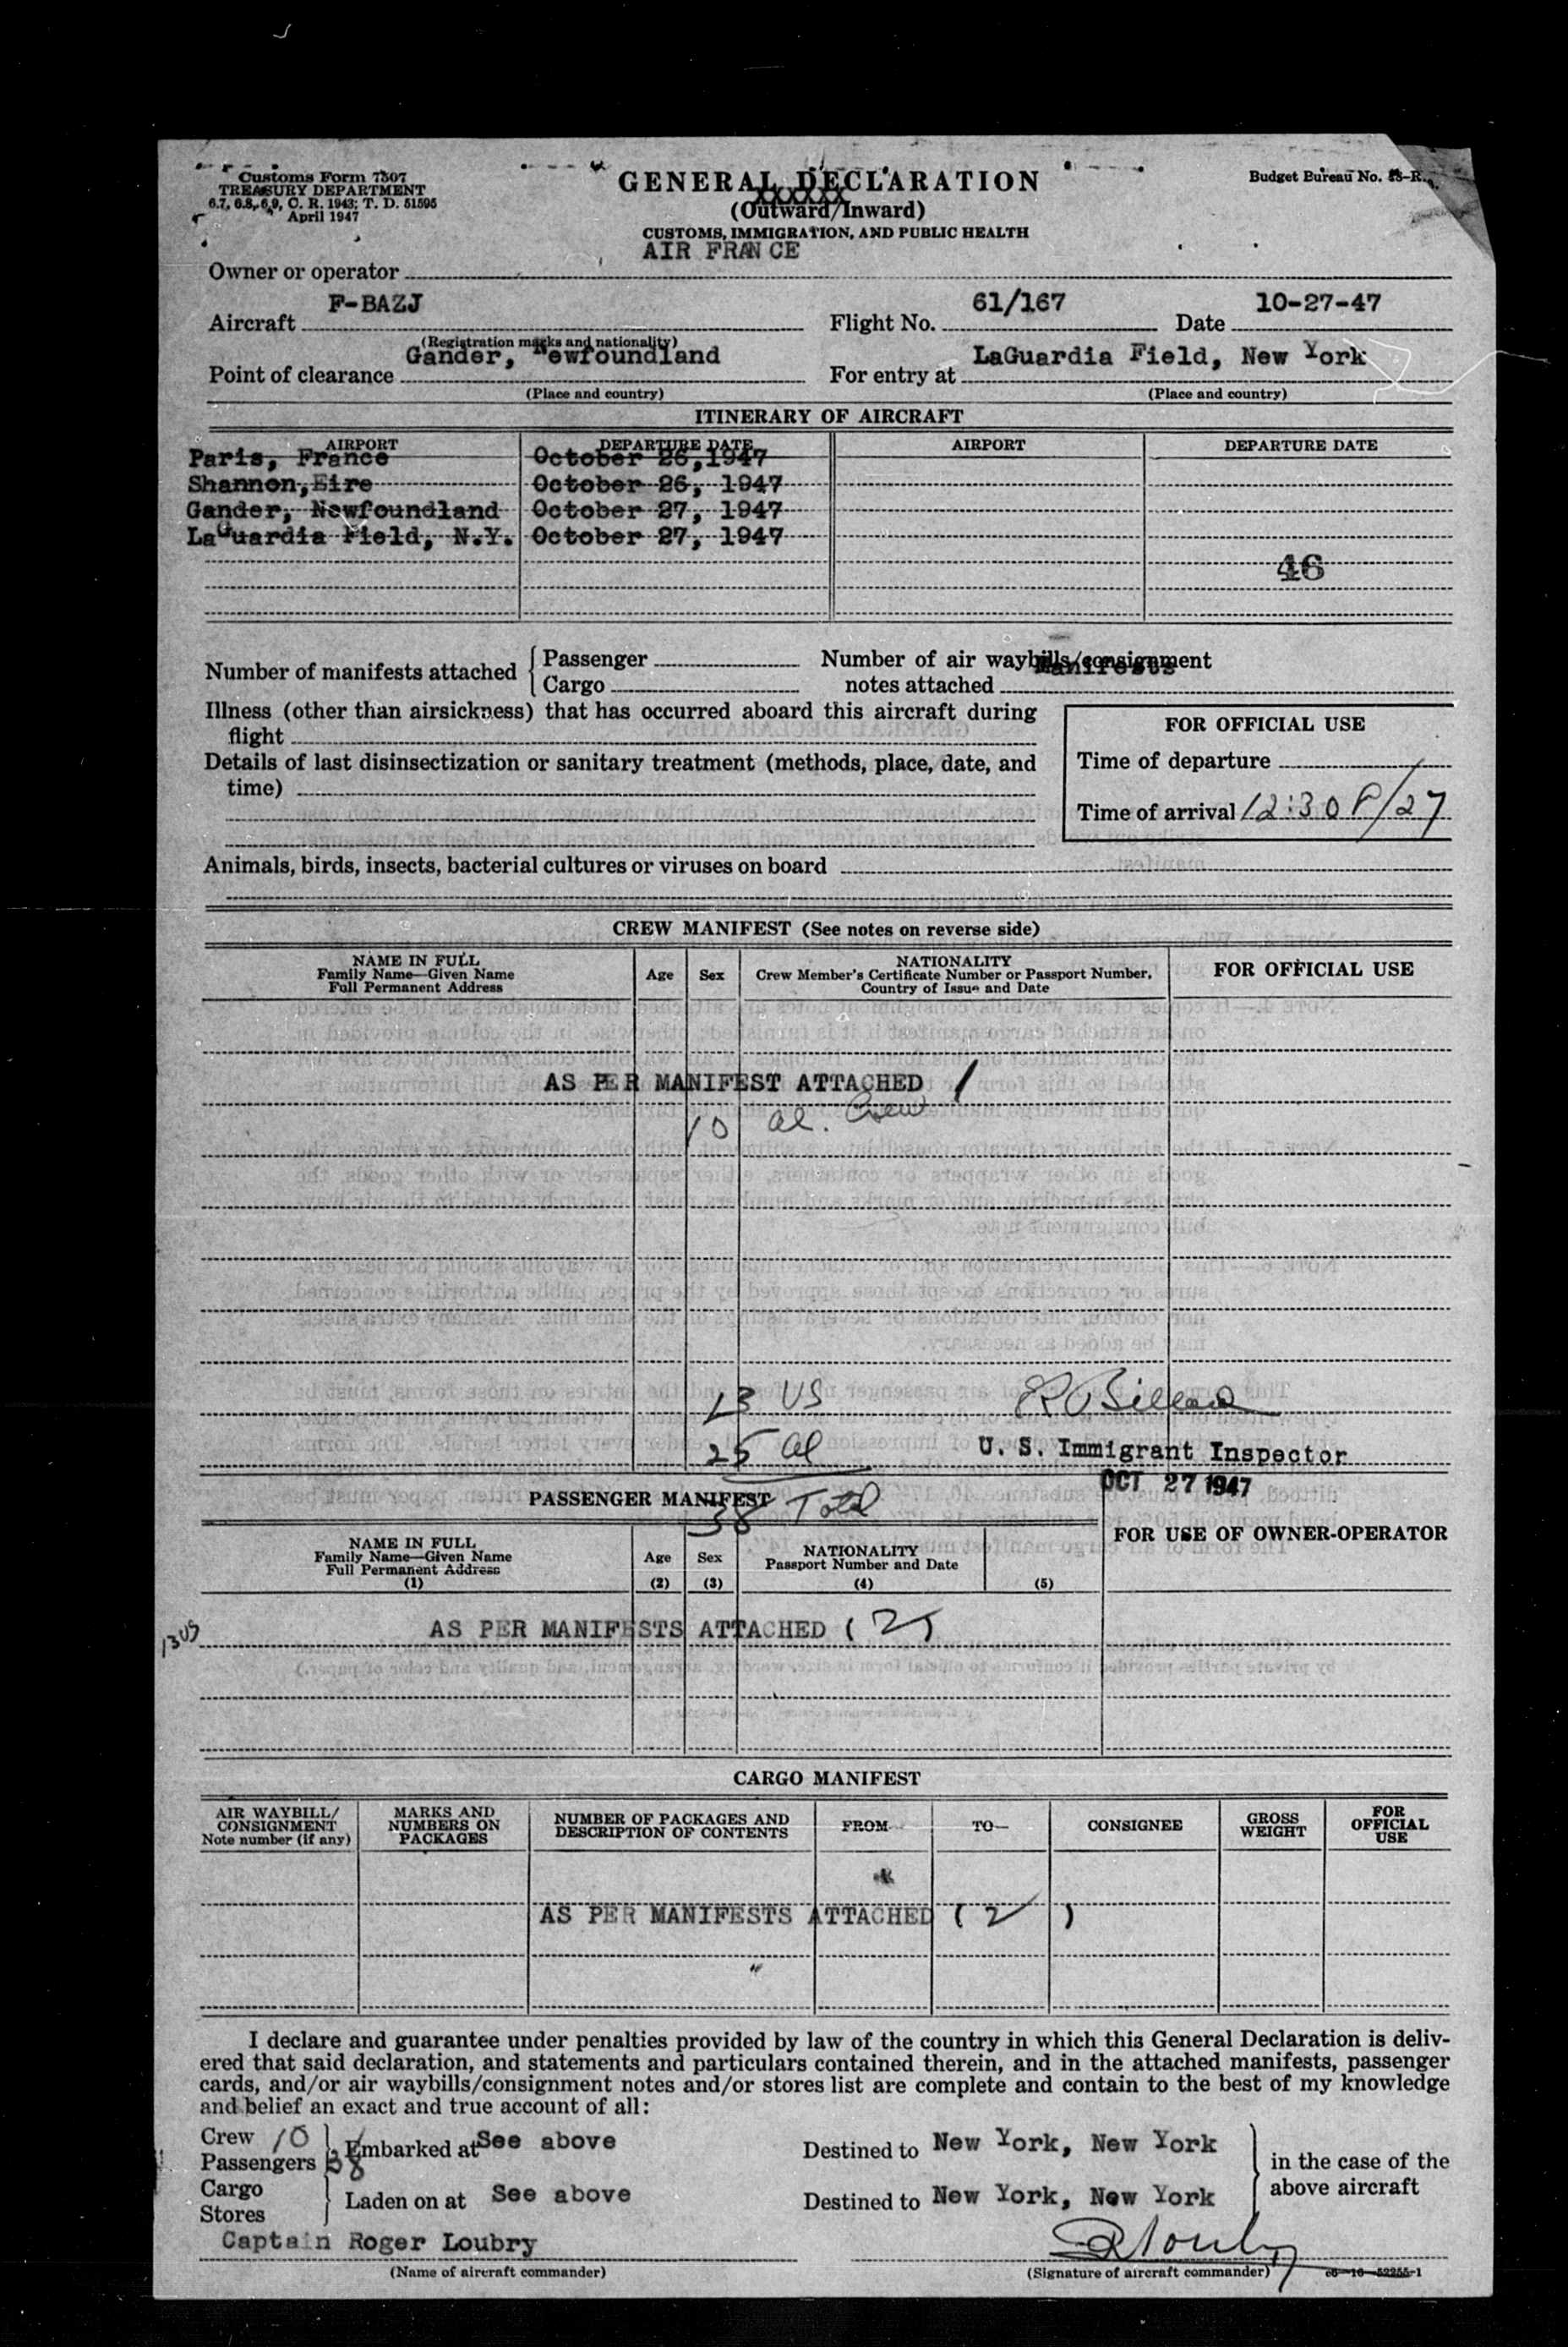 Customs Form 7507
TREASURY DEPARTMENT
6.7, 6.8, 6.9, C. R. 1943; T. D. 51595
April 1947
GENERAL DECLARATION
XXXXXX
(Outward/Inward)
CUSTOMS, IMMIGRATION, AND PUBLIC HEALTH
Budget Bureau No.
AIR FRANCE
Owner or operator
F-BAZJ 61/167 10-27-47
Aircraft Flight No. Date
(Registration marks and nationality)
Gander, Newfoundland LaGuardia Field, New York
Point of clearance For entry at
(Place and country) (Place and country)
ITINERARY OF AIRCRAFT
AIRPORT DEPARTURE DATE AIRPORT DEPARTURE DATE
Paris, France October 26, 1947
Shannon, Eire October 26, 1947
Gander, Newfoundland October 27, 1947
LaGuardia Field, N.Y. October 27, 1947
46
Number of manifests attached { Passenger Number of air waybills/consignment
Cargo notes attached
Manifests
Illness (other than airsickness) that has occurred aboard this aircraft during
flight
Details of last disinsectization or sanitary treatment (methods, place, date, and
time)
FOR OFFICIAL USE
Time of departure
Time of arrival 12:30 P/27
Animals, birds, insects, bacterial cultures or viruses on board
CREW MANIFEST (See notes on reverse side)
NAME IN FULL
Family Name—Given Name
Full Permanent Address
Age Sex
NATIONALITY
Crew Member's Certificate Number or Passport Number,
Country of Issue and Date
FOR OFFICIAL USE
AS PER MANIFEST ATTACHED /
10 al. Crew
13 US
25 al
U. S. Immigrant Inspector
OCT 27 1947
PASSENGER MANIFEST
38 Total
NAME IN FULL
Family Name—Given Name
Full Permanent Address
(1)
Age
(2)
Sex
(3)
NATIONALITY
Passport Number and Date
(4)
(5)
FOR USE OF OWNER-OPERATOR
13 US
AS PER MANIFESTS ATTACHED ( 2 )
CARGO MANIFEST
AIR WAYBILL/
CONSIGNMENT
Note number (if any)
MARKS AND
NUMBERS ON
PACKAGES
NUMBER OF PACKAGES AND
DESCRIPTION OF CONTENTS
FROM—
TO—
CONSIGNEE
GROSS
WEIGHT
FOR
OFFICIAL
USE
AS PER MANIFESTS ATTACHED ( 2 )
I declare and guarantee under penalties provided by law of the country in which this General Declaration is deliv-
ered that said declaration, and statements and particulars contained therein, and in the attached manifests, passenger
cards, and/or air waybills/consignment notes and/or stores list are complete and contain to the best of my knowledge
and belief an exact and true account of all:
Crew 10
Passengers 38
Embarked at See above Destined to New York, New York
in the case of the
above aircraft
Cargo
Stores
Laden on at See above Destined to New York, New York
Captain Roger Loubry
(Name of aircraft commander) (Signature of aircraft commander) c6—16—52255-1